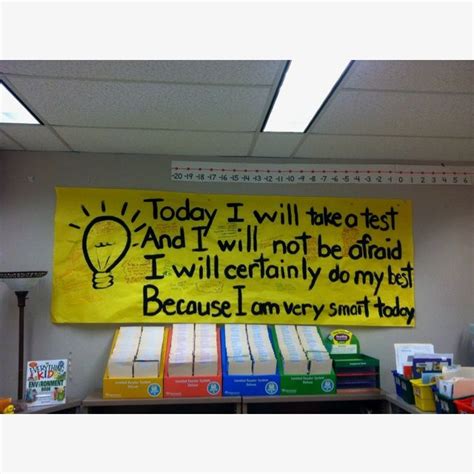 -20 -19 -18 -17 -16 -15 -14 -13 -12 -11 -10 -9 -8 -7 -6 -5 -4 -3 -2 -1 0 1 2 3 4
Today I will take a test
And I will not be afraid
I will certainly do my best
Because I am very smart today
EVERYTHING
KIDS'
ENVIRONMENT
BOOK